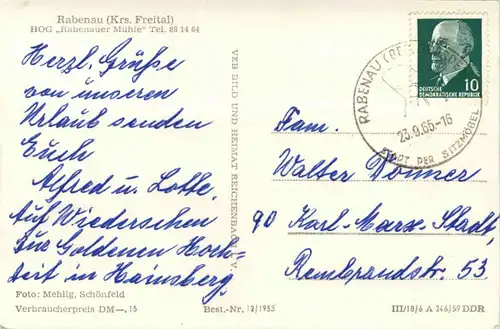 Rabenau (Krs. Freital)
HOG „Rabenauer Mühle" Tel. 88 14 64
Herzl. Grüße
von unseren
Urlaub senden
Euch
Alfred u. Lotte.
Auf Wiedersehen
zur Goldenen Hoch-
zeit in Hainsberg.
Foto: Mehlig, Schönfeld
Verbraucherpreis DM —,15
Best.-Nr. 12/1953
VEB BILD UND HEIMAT REICHENBACH
10
DEUTSCHE
DEMOKRATISCHE REPUBLIK
RABENAU
23.9.65-16
STADT DER SITZMÖBEL
Fam.
Walter Donner
90 Karl-Marx-Stadt,
Rembrandstr. 53
III/18/6 A 246/59 DDR